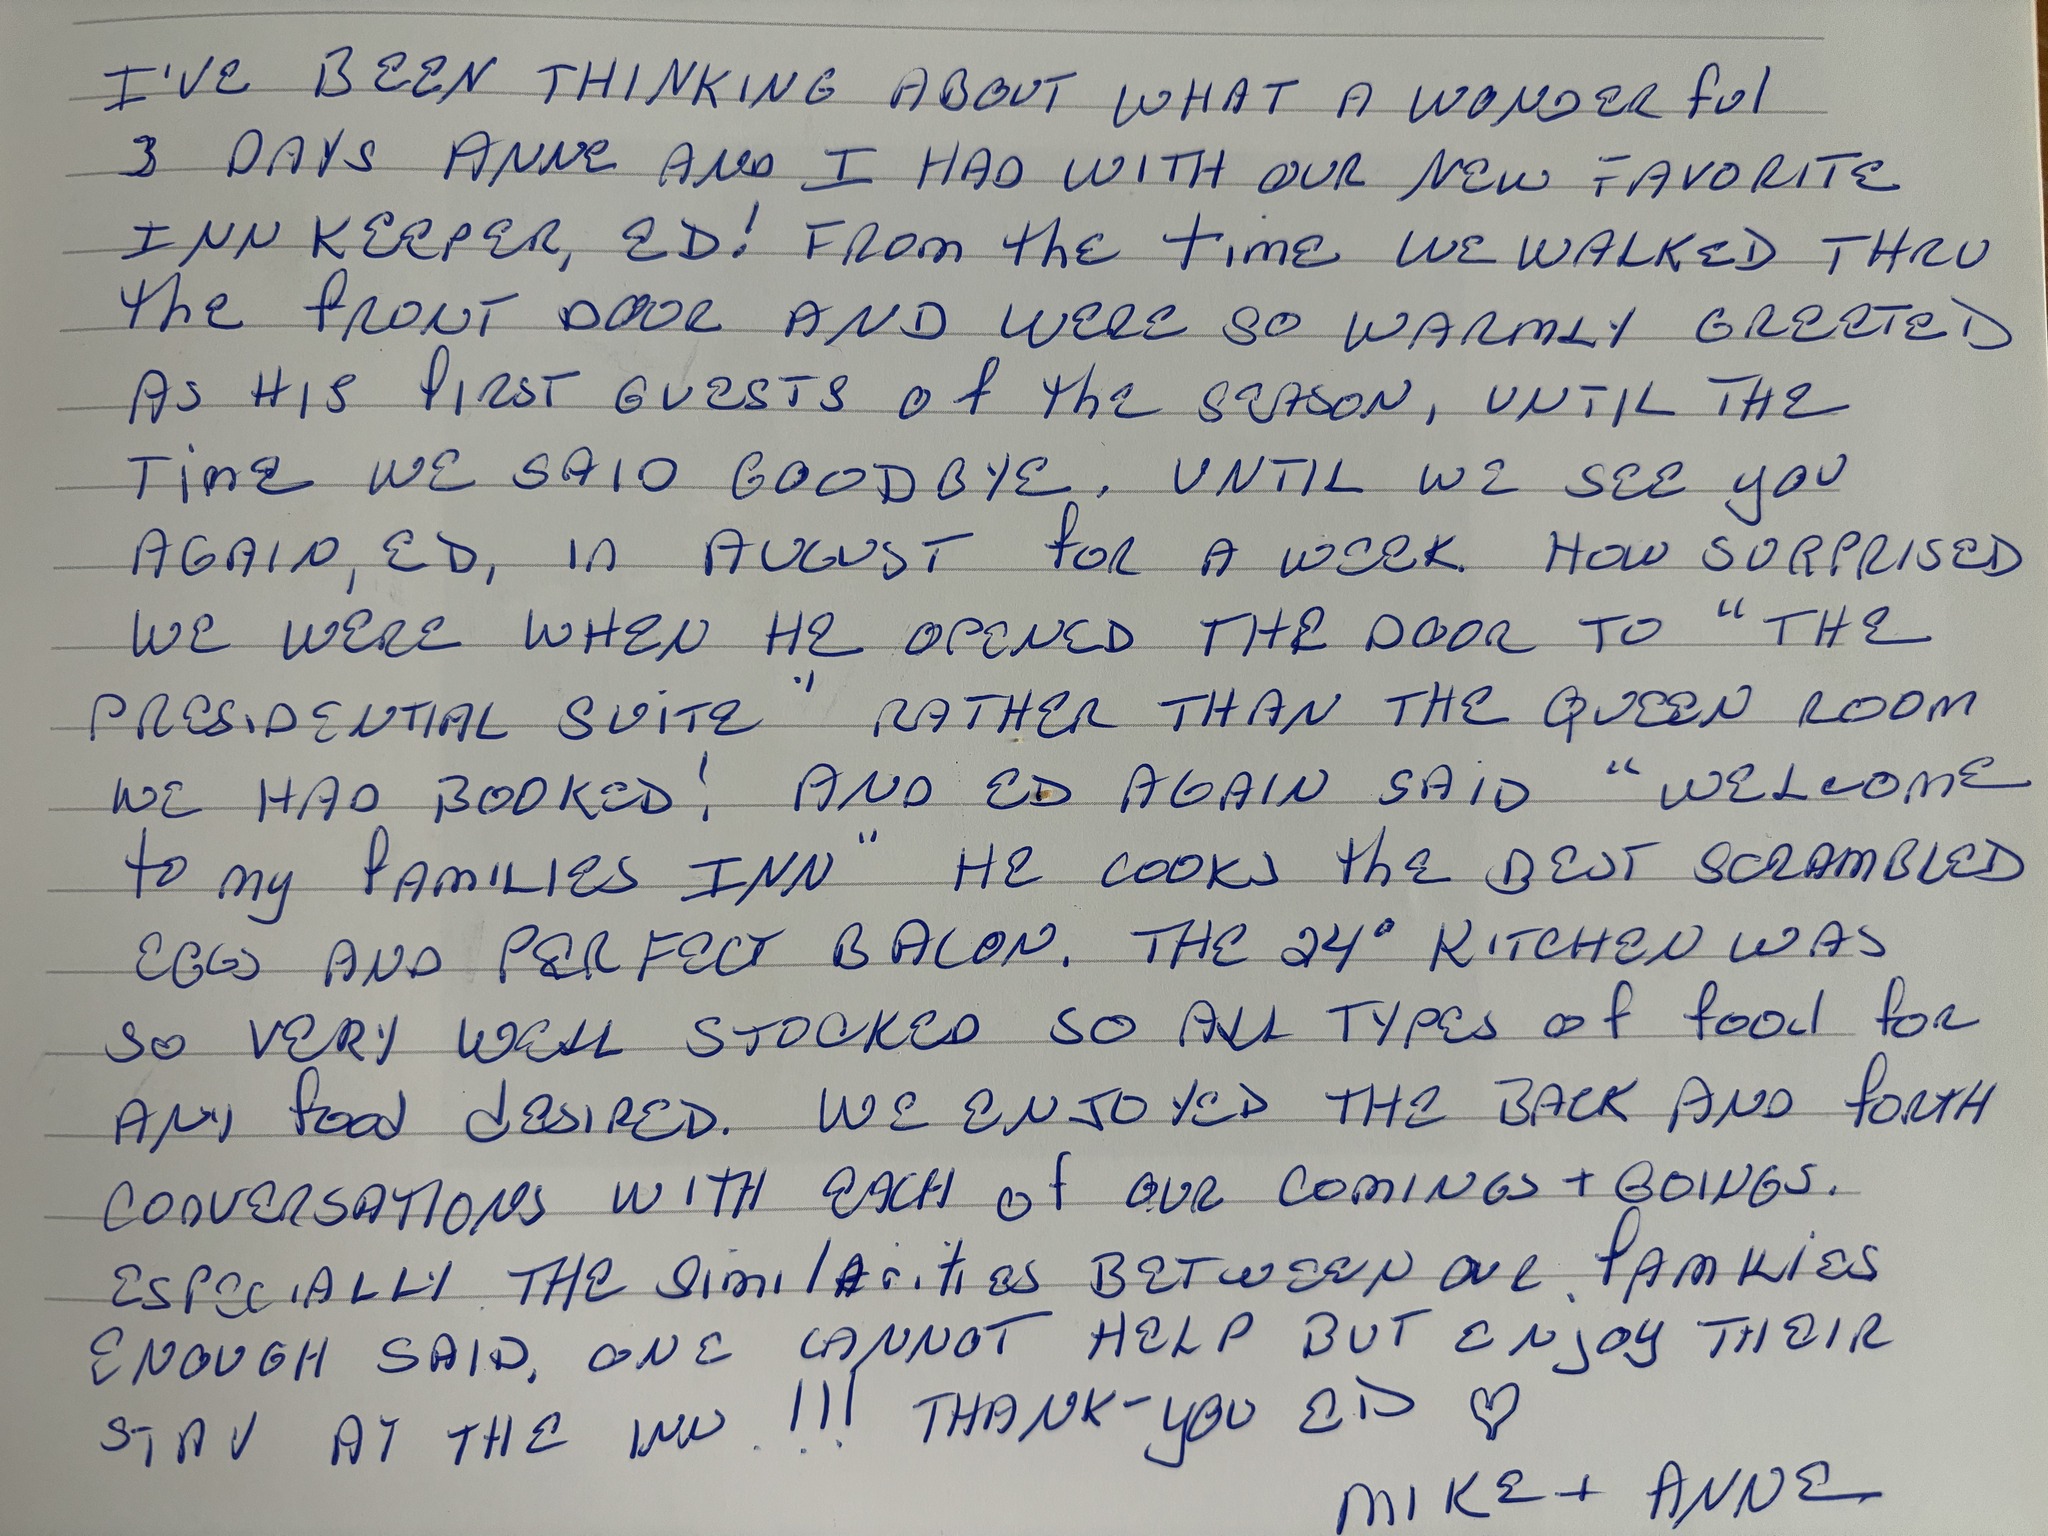 I'VE BEEN THINKING ABOUT WHAT A WONDERful
3 DAYS ANNE AND I HAD WITH OUR NEW FAVORITE
INN KEEPER, ED! FROM the time WE WALKED THRU
the fRONT DOOR AND WERE SO WARMLY GREETED
AS HIS fIRST GUESTS of the SEASON, UNTIL THE
TimE WE SAID GOODBYE. UNTIL WE SEE YOU
AGAIN, ED, IN AUGUST foR A WEEK. HOW SURPRISED
WE WERE WHEN HE OPENED THE DOOR TO "THE
PRESIDENTIAL SUITE" RATHER THAN THE QUEEN ROOM
WE HAD BOOKED! AND ED AGAIN SAID "WELCOME
to my fAMILIES INN" HE COOKS the BEST SCRAMBLED
EGGS AND PERFECT BACON. THE 24° KITCHEN WAS
SO VERY WELL STOCKED SO ALL TYPES of food foR
ANY food dESIRED. WE ENJOYED THE BACK AND fORTH
CONVERSATIONS WITH EACH of OUR COMINGS + GOINGS.
ESPECIALLY THE SimilAritiES BETWEEN OUR fAMILIES.
ENOUGH SAID, ONE CANNOT HELP BUT ENJOY THEIR
STAY AT THE INN!!! THANK-YOU ED ♡
MIKE + ANNE